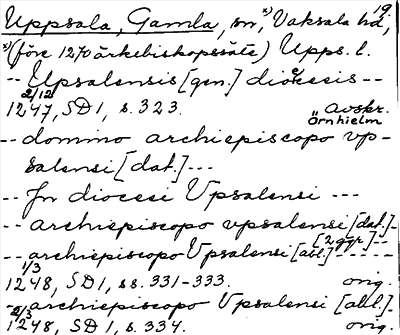 19
Uppsala, Gamla, sn, x) Vaksala hd,
x) (före 1270 ärkebiskopssäte) Upps. l.
-- Upsalensis [gen.] diocesis --
2/12
1247, SD 1, s. 323. avskr.
Örnhielm
-- domino archiepiscopo vp-
salensi [dat.] ---
-- Jn diocesi Vpsalensi ---
-- archiepiscopo vpsalensi [dat.] -
[2 ggr] --
-- archiepiscopo Vpsalensi [abl.] -----
1/3
1248, SD 1, ss. 331-333. orig.
-- archiepiscopo Vpsalensi [abl.] -
2/3
1248, SD 1, s. 334. orig.